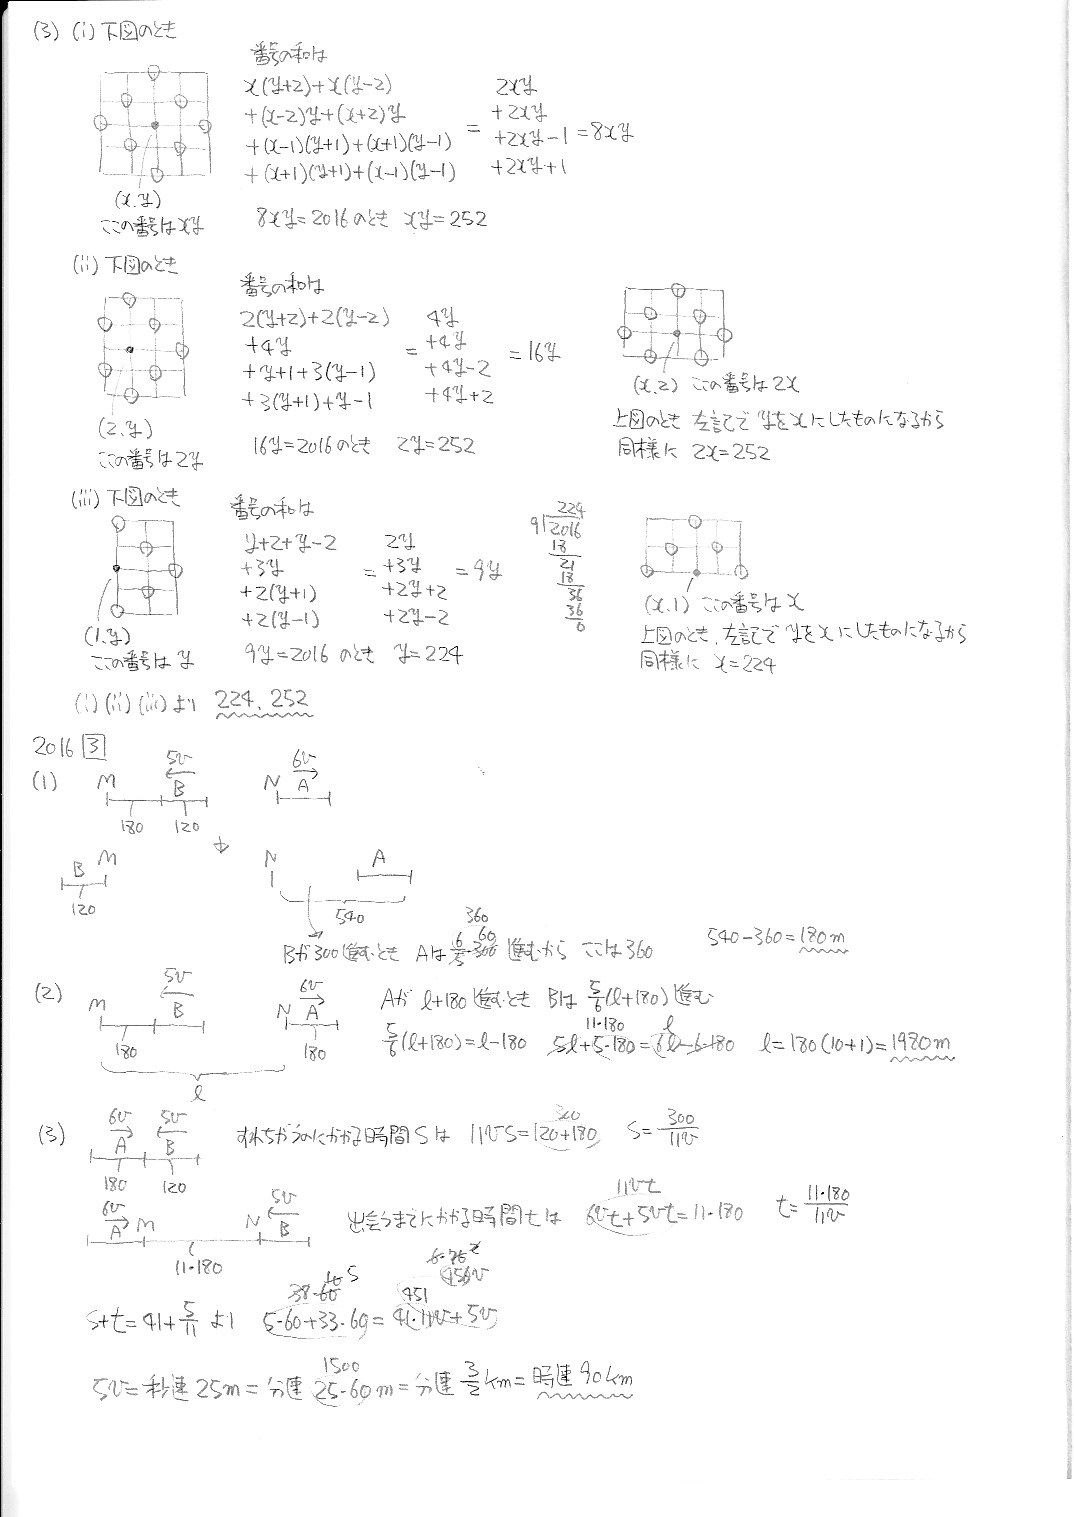 (3) (i) 下図のとき
番号の和は
x(y+2)+x(y-2)
+(x-2)y+(x+2)y
+(x-1)(y+1)+(x+1)(y-1)
+(x+1)(y+1)+(x-1)(y-1)
=
2xy
+2xy
+2xy-1
+2xy+1
=8xy
(x,y)
ここの番号はxy
8xy=2016のとき xy=252
(ii) 下図のとき
番号の和は
2(y+2)+2(y-2)
+4y
+y+1+3(y-1)
+3(y+1)+y-1
=
4y
+4y
+4y-2
+4y+2
=16y
(2,y)
ここの番号は2y
16y=2016のとき 2y=252
(x,2) ここの番号は2x
上図のとき 左記で yをxにしたものになるから
同様に 2x=252
(iii) 下図のとき
番号の和は
y+2+y-2
+3y
+2(y+1)
+2(y-1)
=
2y
+3y
+2y+2
+2y-2
=9y
224
9)2016
18
21
18
36
36
0
(1,y)
ここの番号は y
9y=2016 のとき y=224
(x,1) ここの番号は x
上図のとき、左記で yをxにしたものになるから
同様に x=224
(i) (ii) (iii) より 224、252
2016 3
(1)
M 5v B N 6v A
180 120
B M N A
120 540
Bが300進むとき Aは 進むから ここは360
360
540-360=180m
(2)
M 5v B N 6v A
180 180
l
Aが l+180 進むとき Bは 5/6(l+180) 進む
5/6(l+180)=l-180 5l+5・180=6l-6・180 l=180(10+1)=1980m
11・180 l
(3)
6v A 5v B
180 120
すれちがうのにかかる時間 s は 11vs=120+180 s=300/11v
300
6v A M N 5v B
11・180
出会うまでにかかる時間 t は 6vt+5vt=11・180 t=11・180/11v
11vt
s+t=41+5/11 より 5・60+33・60=41・11v+5v
38・60
451
456v
5v=秒速25m=分速25・60m=分速3/2km=時速90km
1500